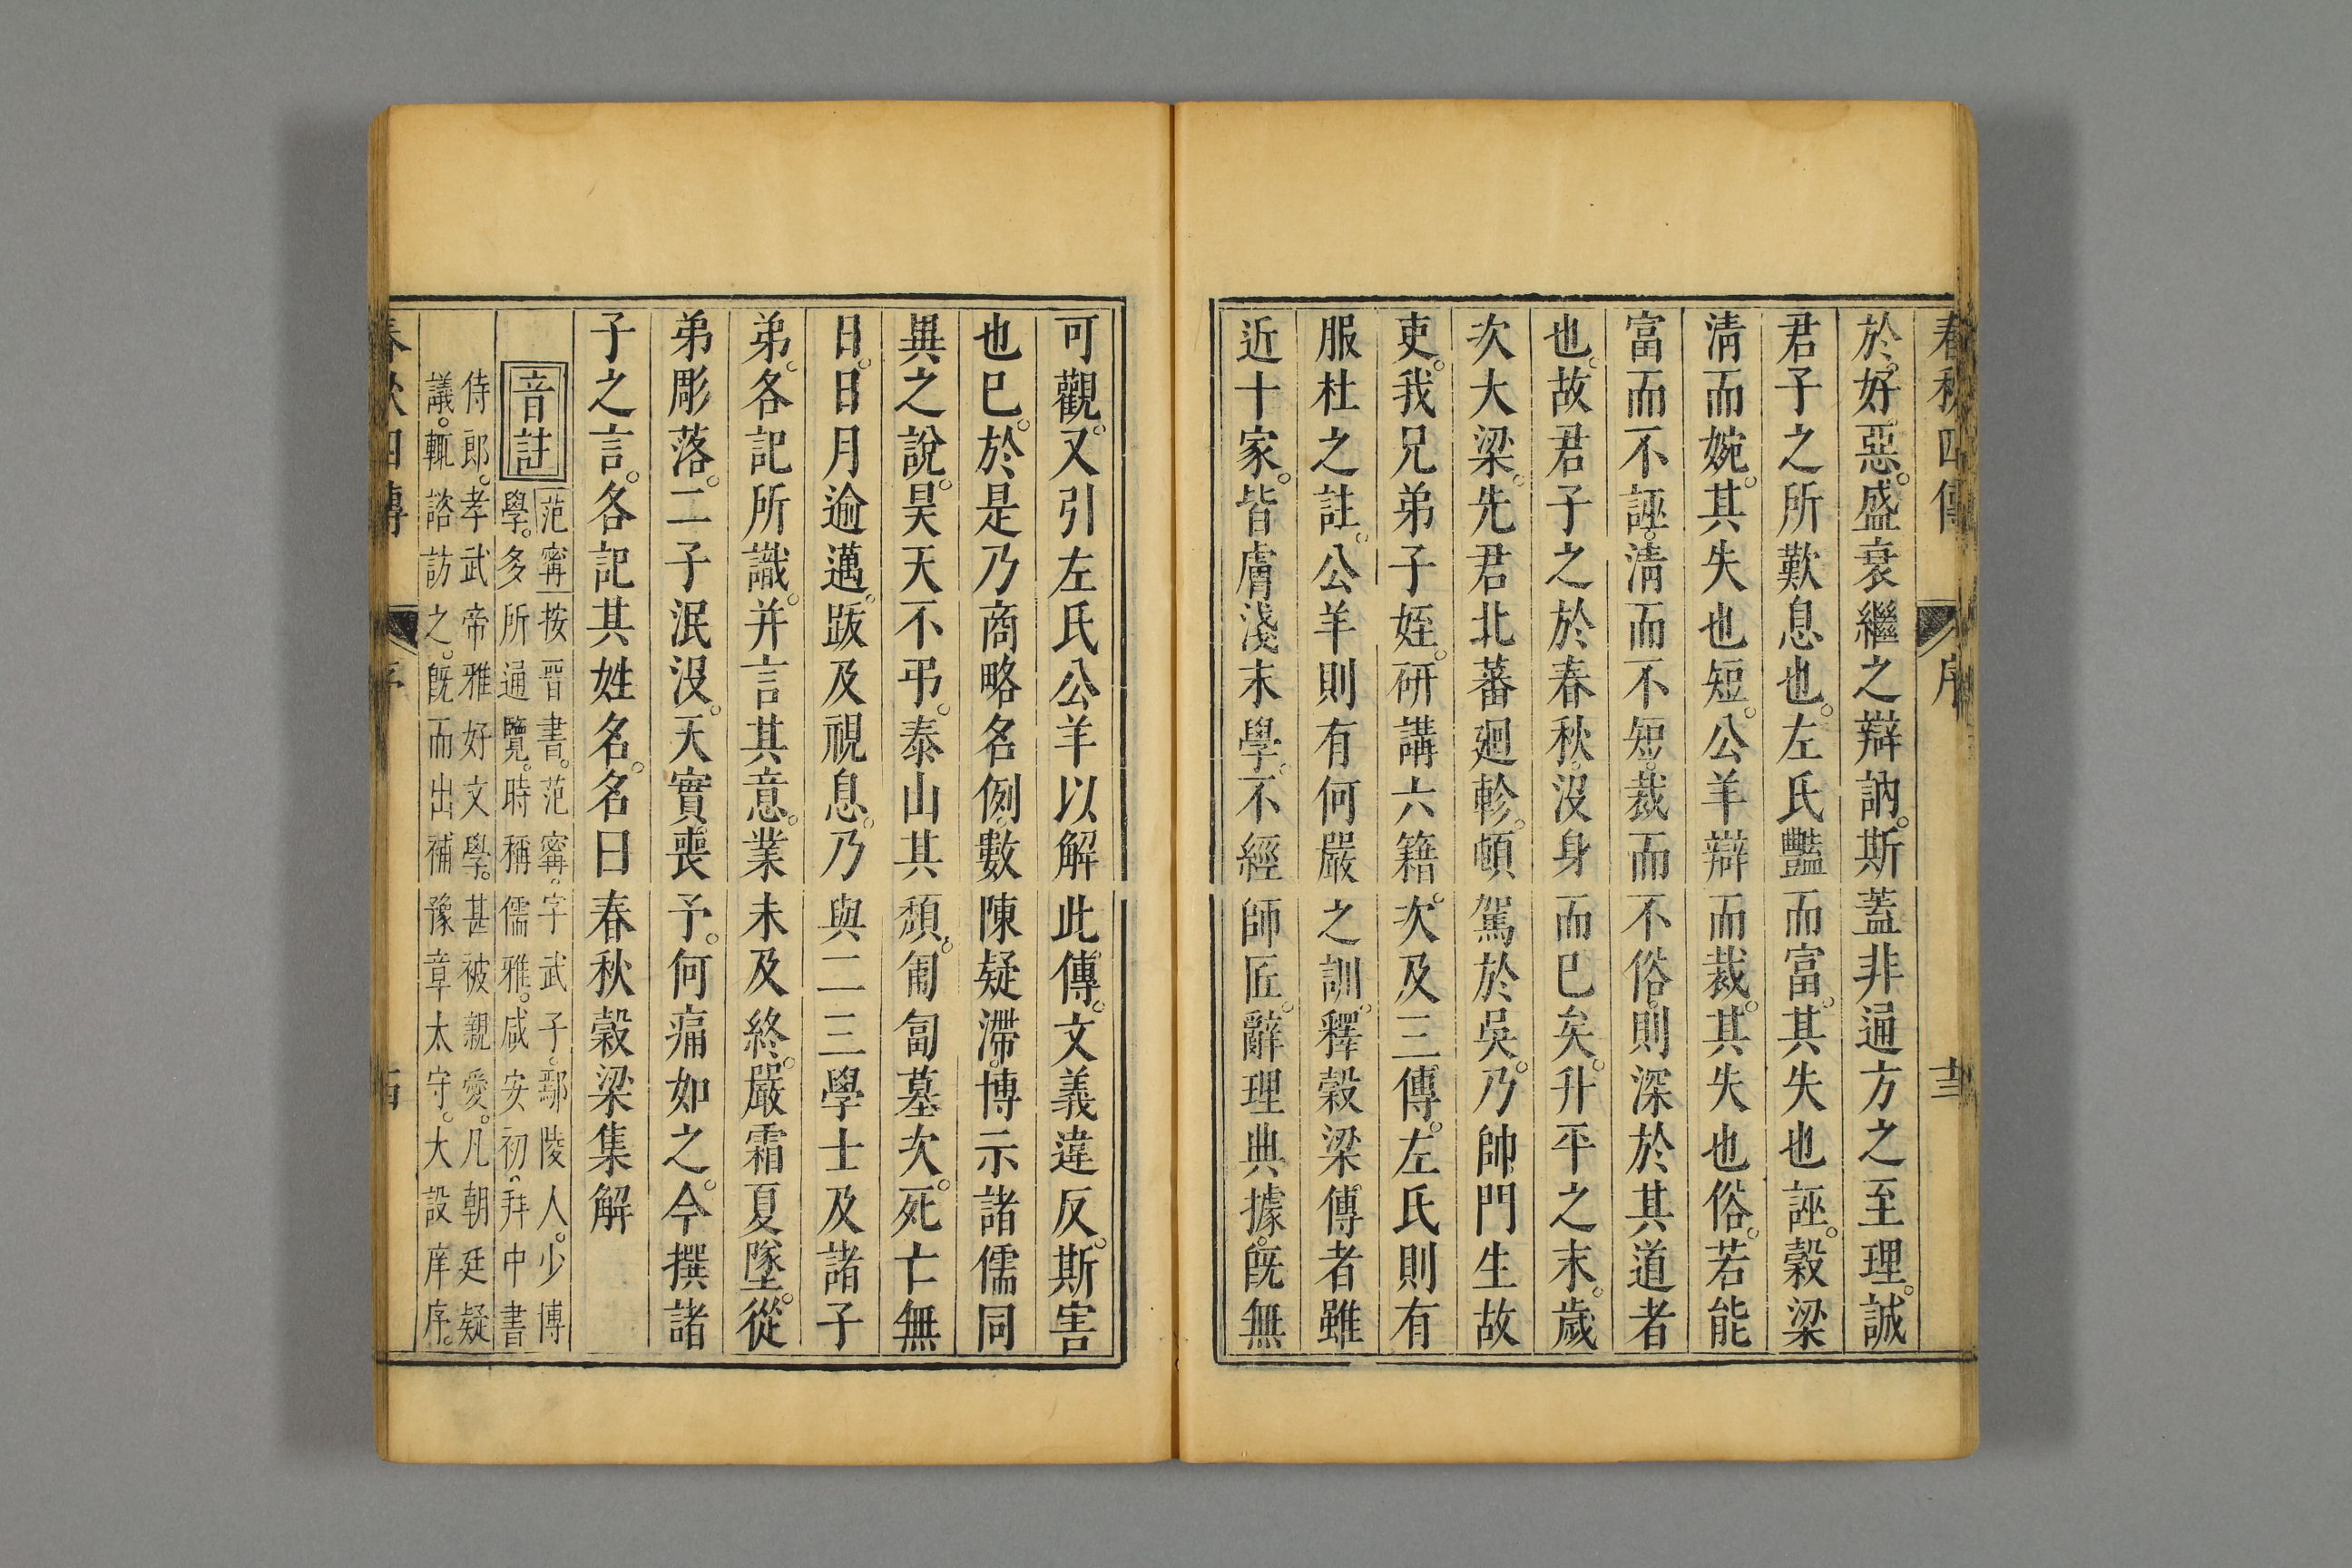 春秋四傳 序 十三
於好惡。盛衰繼之辯訥。斯蓋非通方之至理。誠
君子之所歎息也。左氏豔而富。其失也誣。穀梁
淸而婉。其失也短。公羊辯而裁。其失也俗。若能
富而不誣。淸而不短。裁而不俗。則深於其道者
也。故君子之於春秋。沒身而已矣。升平之末。歲
次大梁。先君北蕃廻軫。頓駕於吳。乃帥門生故
吏。我兄弟子姪。研講六籍。次及三傳。左氏則有
服杜之註。公羊則有何嚴之訓。釋穀梁傳者雖
近十家。皆膚淺末學。不經師匠。辭理典據。旣無
可觀。又引左氏公羊以解此傳。文義違反。斯害
也已。於是乃商略名例。數陳疑滯。博示諸儒同
異之說。昊天不弔。泰山其頹。匍匐墓次。死亡無
日。日月逾邁。跋及視息。乃與二三學士及諸子
弟。各記所識。并言其意。業未及終。嚴霜夏墜。從
弟彫落。二子泯沒。天實喪予。何痛如之。今撰諸
子之言。各記其姓名。名曰春秋穀梁集解
音註
范甯按晉書。范甯。字武子。鄢陵人。少博
學。多所通覽。時稱儒雅。咸安初。拜中書
侍郎。孝武帝雅好文學。甚被親愛。凡朝廷疑
議。輒諮訪之。旣而出補豫章太守。大設庠序。
春秋四傳 序